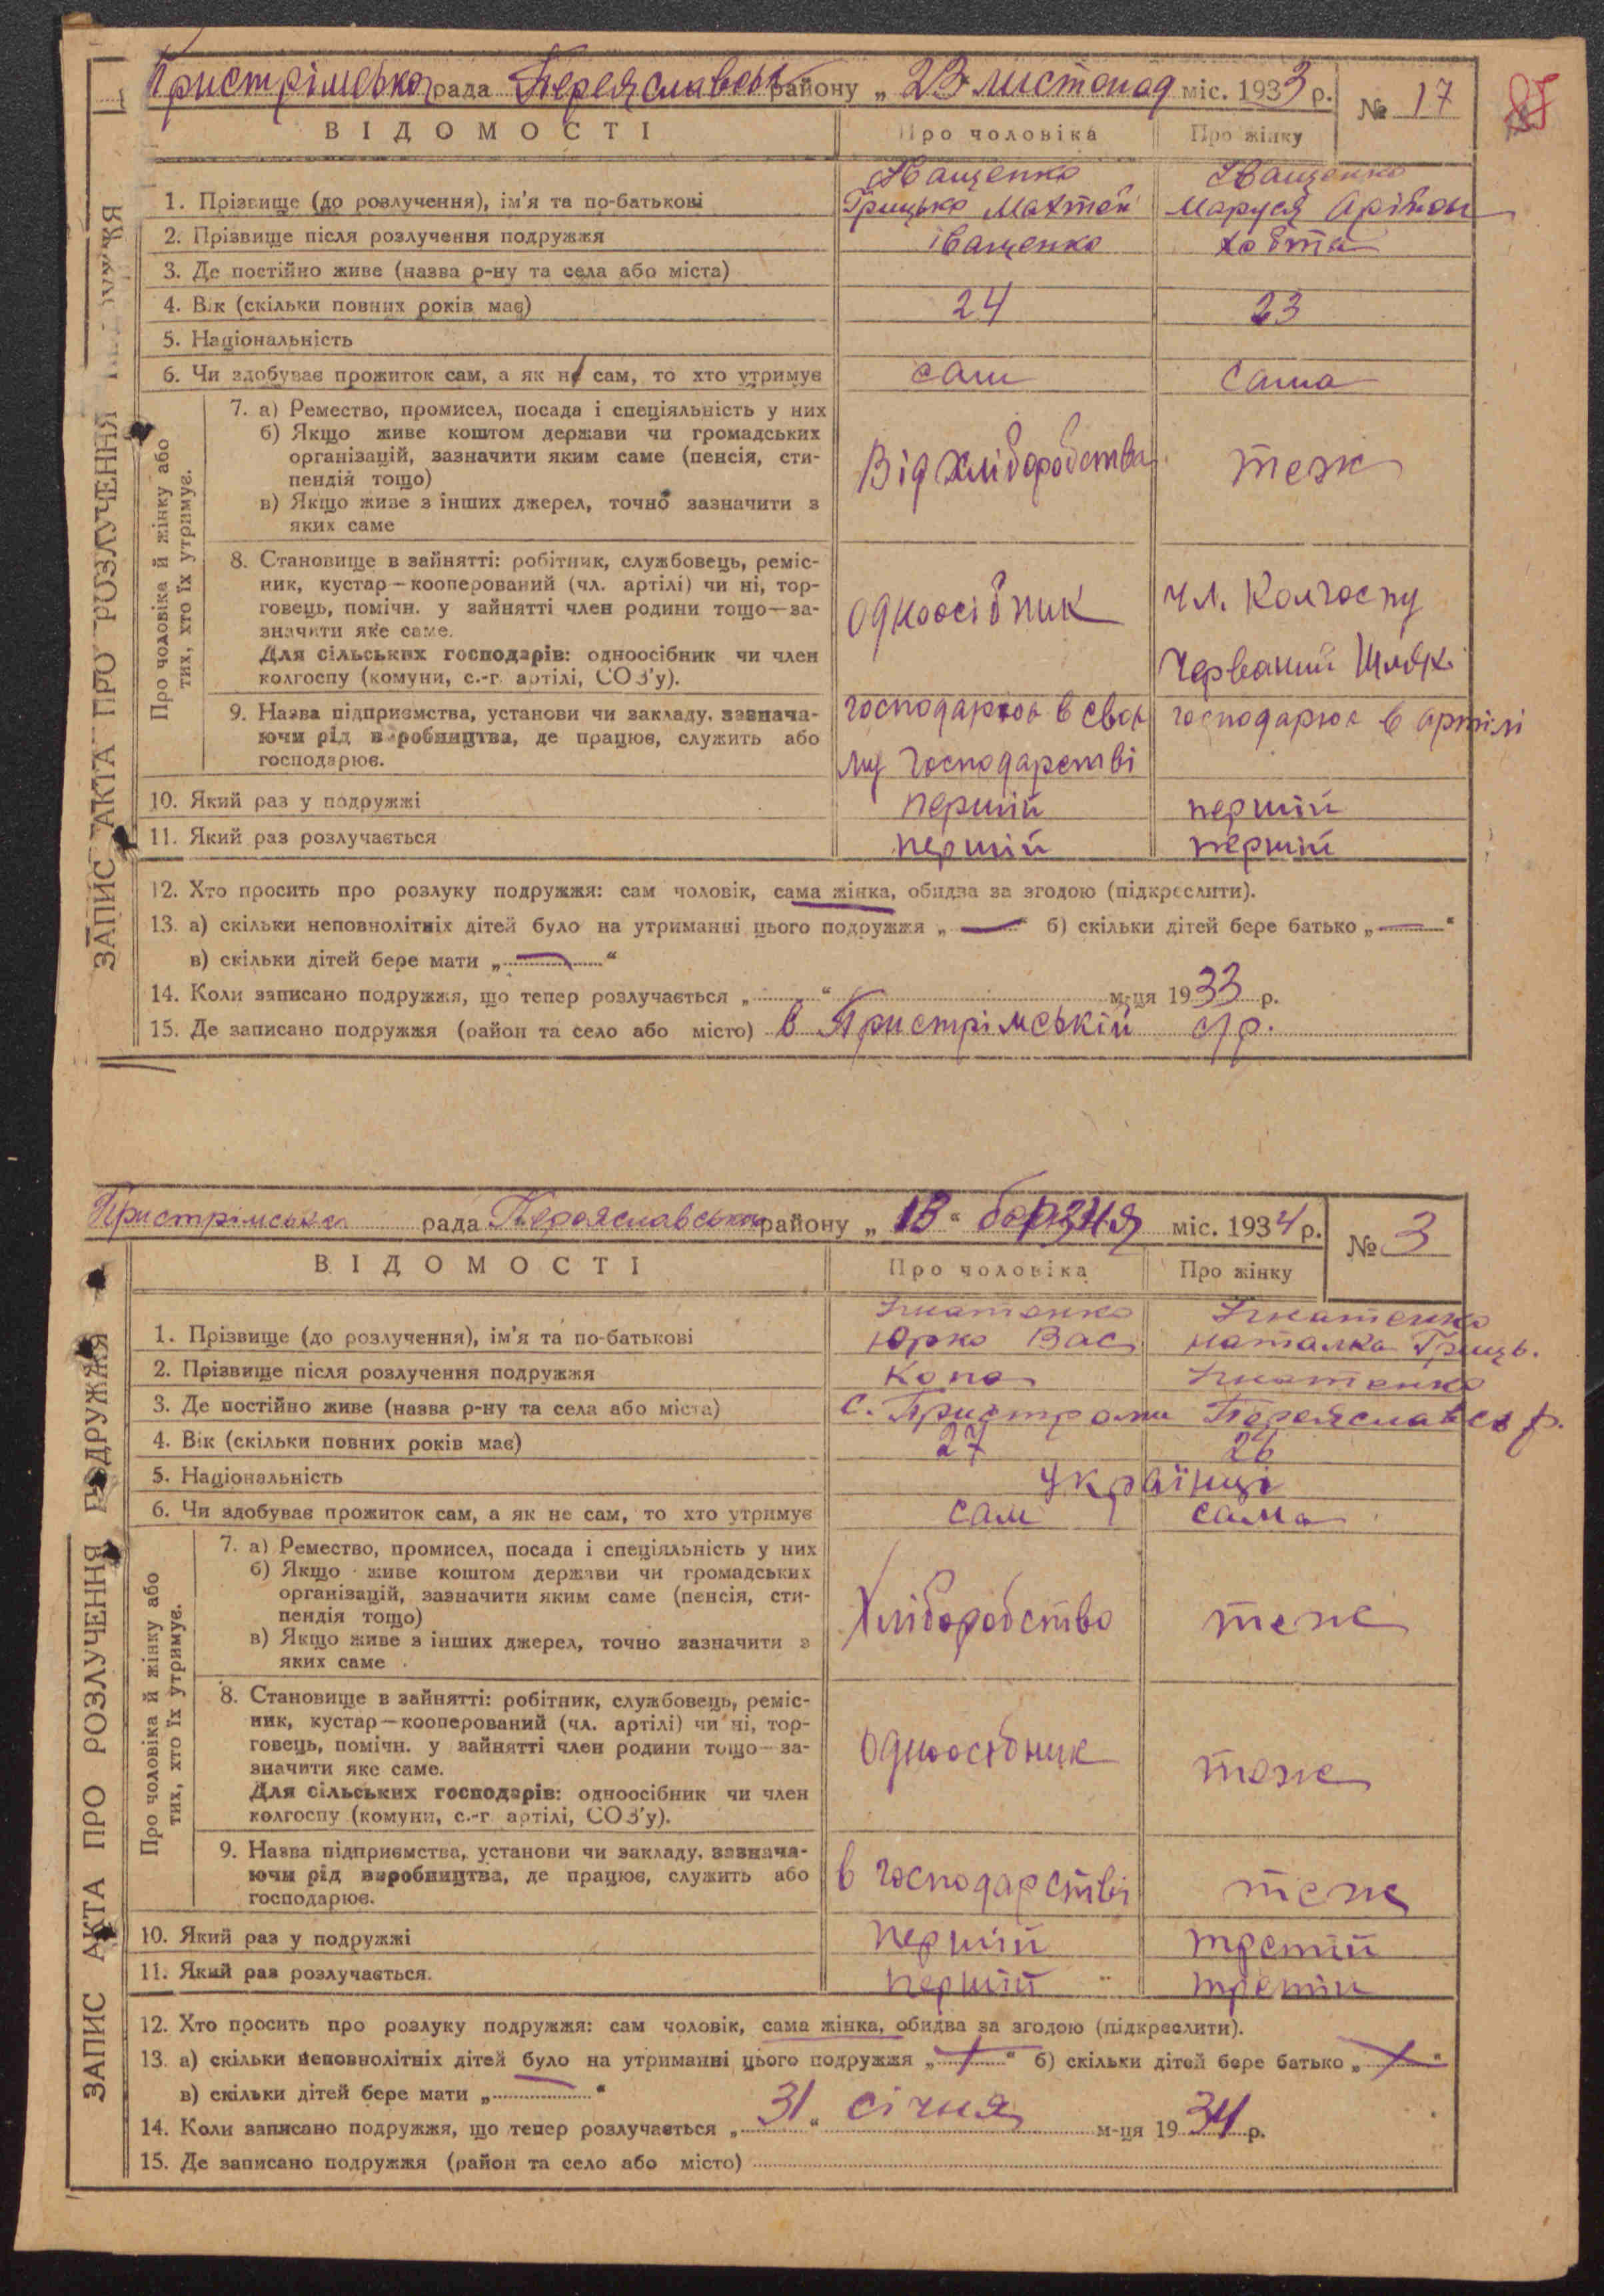 Пристрімська рада Переяславськ району „ 23 листопад міс. 1933 р. № 17
87
ВІДОМОСТІ Про чоловіка Про жінку
Іващенко Іващенко
1. Прізвище (до розлучення), ім'я та по-батькові Грицько Махтей Маруся
2. Прізвище після розлучення подружжя іващенко Ховта
3. Де постійно живе (назва р-ну та села або міста)
4. Вік (скільки повних років має) 24 23
5. Національність
6. Чи здобуває прожиток сам, а як не сам, то хто утримує сам сама
Про чоловіка й жінку або тих, хто їх утримує.
7. а) Ремество, промисел, посада і спеціяльність у них
б) Якщо живе коштом держави чи громадських
організацій, зазначити яким саме (пенсія, сти-
пендія тощо)
в) Якщо живе з інших джерел, точно зазначити з
яких саме
Від хліборобства теж
8. Становище в зайнятті: робітник, службовець, реміс-
ник, кустар—кооперований (чл. артілі) чи ні, тор-
говець, помічн. у зайнятті член родини тощо—за-
значити яке саме.
Для сільських господарів: одноосібник чи член
колгоспу (комуни, с.-г. артілі, СОЗ'у).
одноосібник чл. Колгоспу
Червоний Шлях
9. Назва підприємства, установи чи закладу, зазнача-
ючи рід виробництва, де працює, служить або
господарює.
господарює в сво
му господарстві
господарює в артілі
10. Який раз у подружжі перший перший
11. Який раз розлучається перший перший
12. Хто просить про розлуку подружжя: сам чоловік, сама жінка, обидва за згодою (підкреслити).
13. а) скільки неповнолітніх дітей було на утриманні цього подружжя „ — “ б) скільки дітей бере батько „ — “
в) скільки дітей бере мати „ — “
14. Коли записано подружжя, що тепер розлучається „ “ м-ця 1933 р.
15. Де записано подружжя (район та село або місто) в Пристрімській с/р.
ЗАПИС АКТА ПРО РОЗЛУЧЕННЯ ПОДРУЖЖЯ
Пристрімська рада Переяславська району „ 13 “ борзня міс. 1934 р. № 3
ВІДОМОСТІ Про чоловіка Про жінку
Ігнатенко Ігнатенко
1. Прізвище (до розлучення), ім'я та по-батькові Юрко Вас Наталка Гриць.
2. Прізвище після розлучення подружжя Копа Ігнатенко
3. Де постійно живе (назва р-ну та села або міста) С. Пристроми Переяславськ р.
4. Вік (скільки повних років має) 27 26
5. Національність українці
6. Чи здобуває прожиток сам, а як не сам, то хто утримує сам сама
Про чоловіка й жінку або тих, хто їх утримує.
7. а) Ремество, промисел, посада і спеціяльність у них
б) Якщо живе коштом держави чи громадських
організацій, зазначити яким саме (пенсія, сти-
пендія тощо)
в) Якщо живе з інших джерел, точно зазначити з
яких саме
Хліборобство теж
8. Становище в зайнятті: робітник, службовець, реміс-
ник, кустар—кооперований (чл. артілі) чи ні, тор-
говець, помічн. у зайнятті член родини тощо—за-
значити яке саме.
Для сільських господарів: одноосібник чи член
колгоспу (комуни, с.-г. артілі, СОЗ'у).
одноосібник теж
9. Назва підприємства, установи чи закладу, зазнача-
ючи рід виробництва, де працює, служить або
господарює.
в господарстві теж
10. Який раз у подружжі перший третій
11. Який раз розлучається. перший третій
12. Хто просить про розлуку подружжя: сам чоловік, сама жінка, обидва за згодою (підкреслити).
13. а) скільки неповнолітніх дітей було на утриманні цього подружжя „ “ б) скільки дітей бере батько „ “
в) скільки дітей бере мати „ — “
14. Коли записано подружжя, що тепер розлучається „ 31 “ січня м-ця 1934 р.
15. Де записано подружжя (район та село або місто)
ЗАПИС АКТА ПРО РОЗЛУЧЕННЯ ПОДРУЖЖЯ